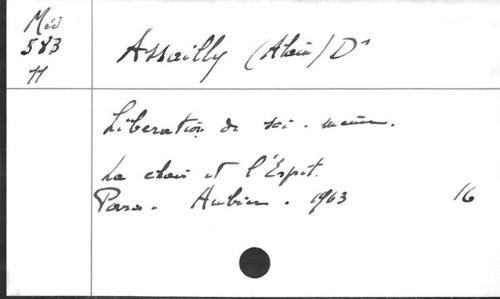 Méd
583
11
Assailly (Alain) Dr
Libération de soi-même.
La chair et l'Esprit.
Paris. Aubin. 1963 16